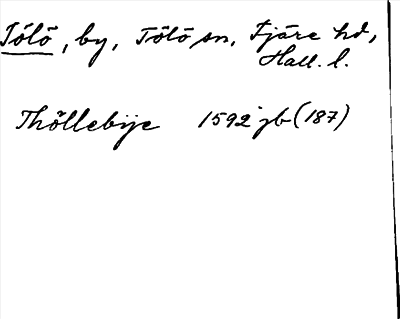 Tölö, by, Tölö sn, Fjäre hd,
Hall. l.
Thöllebÿe 1592 jb (187)